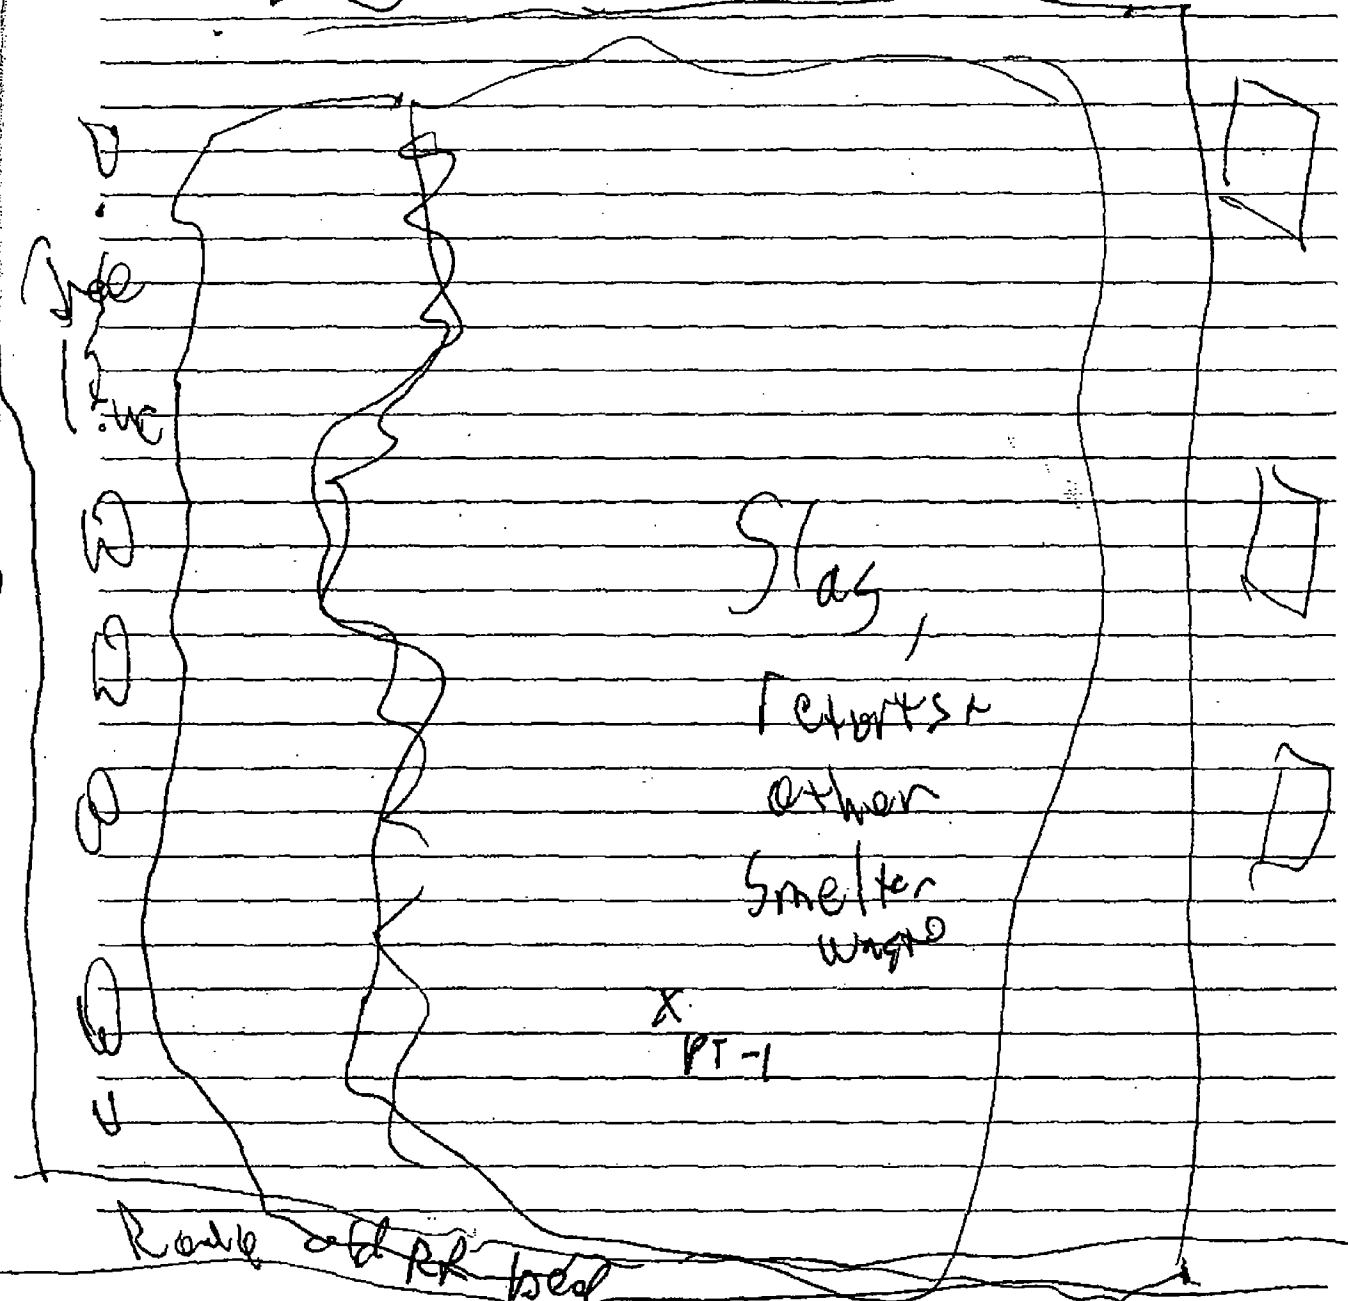 Tree
Line
Slag,
retorts &
other
smelter
waste
X
PT-1
old RR bed